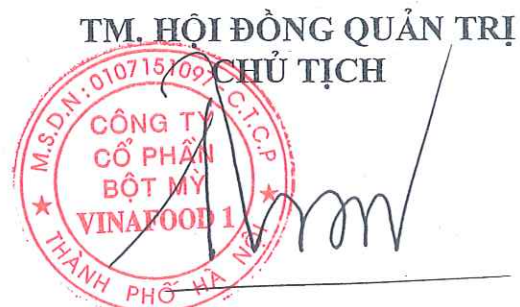 TM. HỘI ĐỒNG QUẢN TRỊ
CHỦ TỊCH
M.S.D.N: 0107151097 - C.T.C.P
CÔNG TY
CỔ PHẦN
BỘT MỲ
VINAFOOD 1
THÀNH PHỐ HÀ NỘI